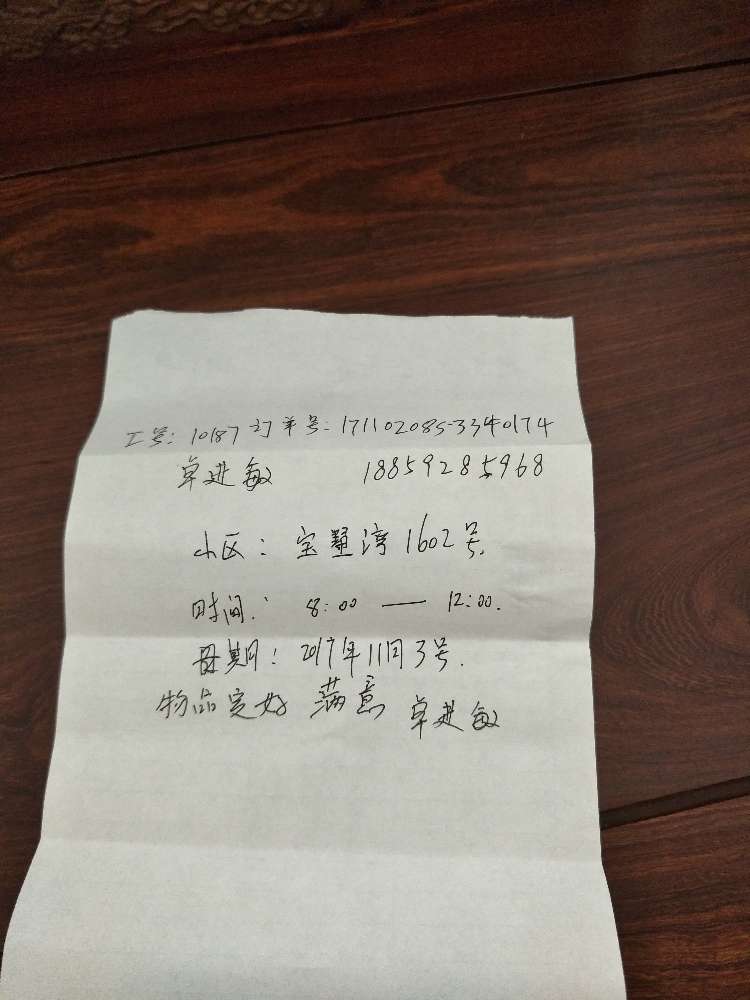 工号: 10187 订单号: 1711020853340174
卓进敏 18859285968
小区: 宝墅湾1602号.
时间: 8:00 — 12:00.
日期: 2017年11月3号.
物品完好 满意 卓进敏